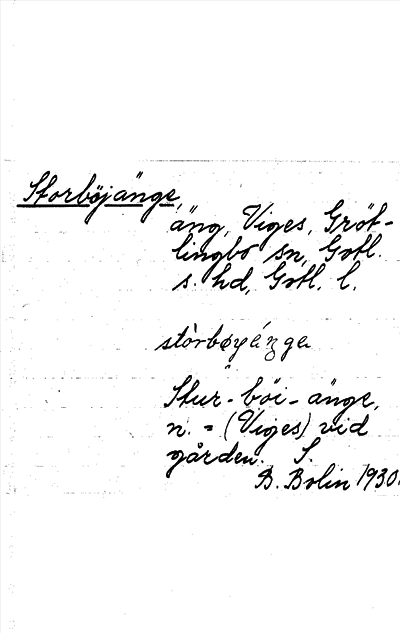 Storböjänge,
äng, Viges, Gröt-
lingbo sn, Gotl.
s. hd, Gotl. l.
stòrbøyéŋge
Stur-böi-änge,
n. = (Viges) vid
gården. S.
B. Bolin 1930.